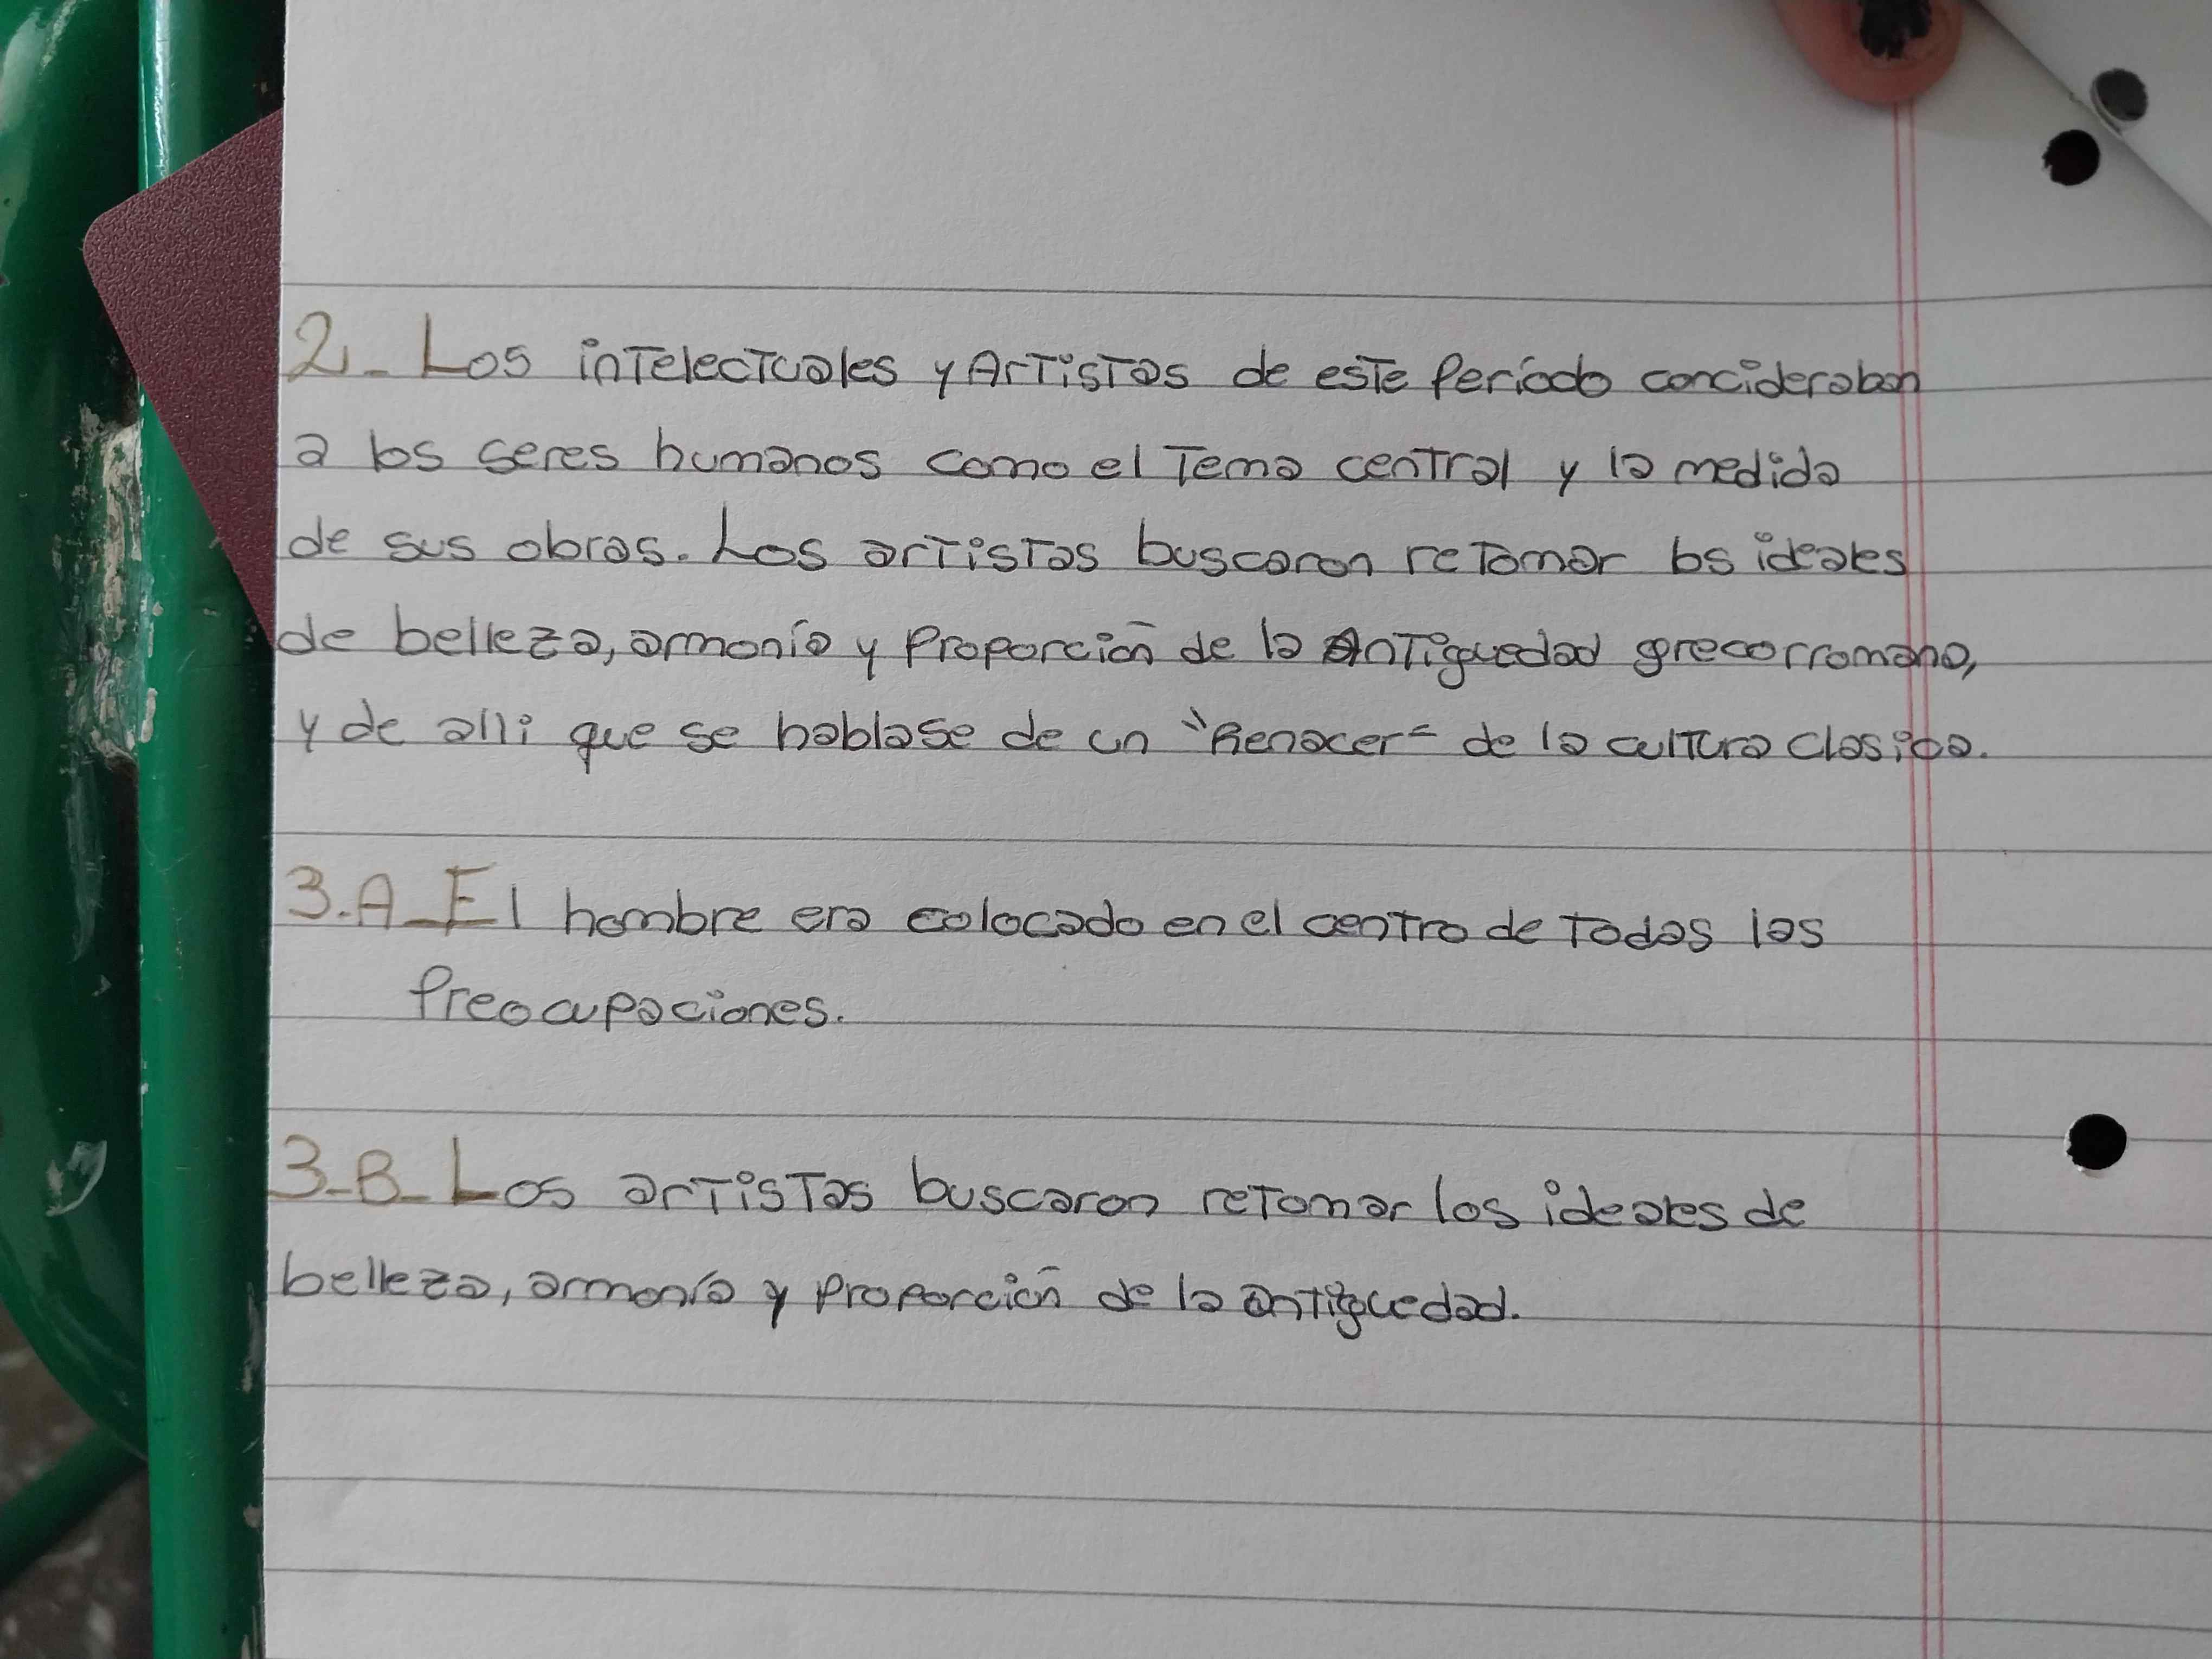 2- Los intelectuales y Artistas de este Período concideraban
a los seres humanos como el Tema central y la medida
de sus obras. Los artistas buscaron retomar los ideales
de belleza, armonía y Proporción de la Antiguedad grecorromana,
y de alli que se hablase de un "Renacer" de la cultura clasica.
3.A- El hombre era colocado en el centro de Todas las
Preocupaciones.
3-B- Los artistas buscaron retomar los ideales de
belleza, armonía y Proporción de la antiguedad.